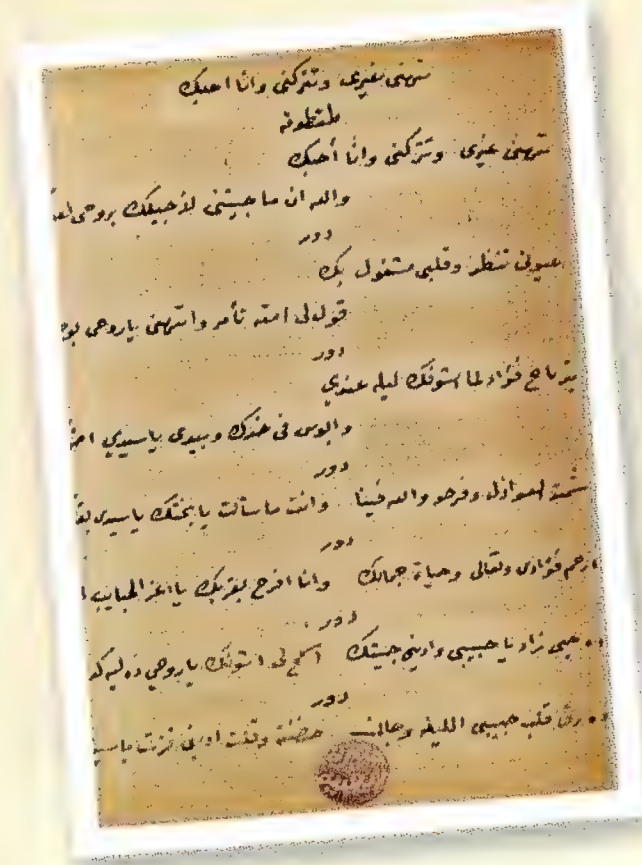 تتهنى بغيرى وتتركنى وانا احبك
طقطوقه
تتهنى بغيرى وتتركنى وانا أحبك
والله ان ما جيتنى لأجيلك بروحى
دور
عيونى تنظر وقلبى مشغول بك
قول لى امته تأمر واتهنى ياروحى
دور
يرتاح فؤادى لما اشوفك ليله عندي
وابوس فى خدك وبيدى ياسيدي
دور
العوازل وفرحو والله فينا وانت ما سألت يا بختك ياسيدى
دور
ارحم فؤادى وتعالى وحياة جمالك وانا افرح بقربك يا اعز الحبايب
دور
حبى زاد يا حبيبى وادينى جيتك اسمح لى اشوفك ياروحي ده ليه
دور
رق قلب حبيبى الليله وجانى حضنته وقلت ادينى فزت